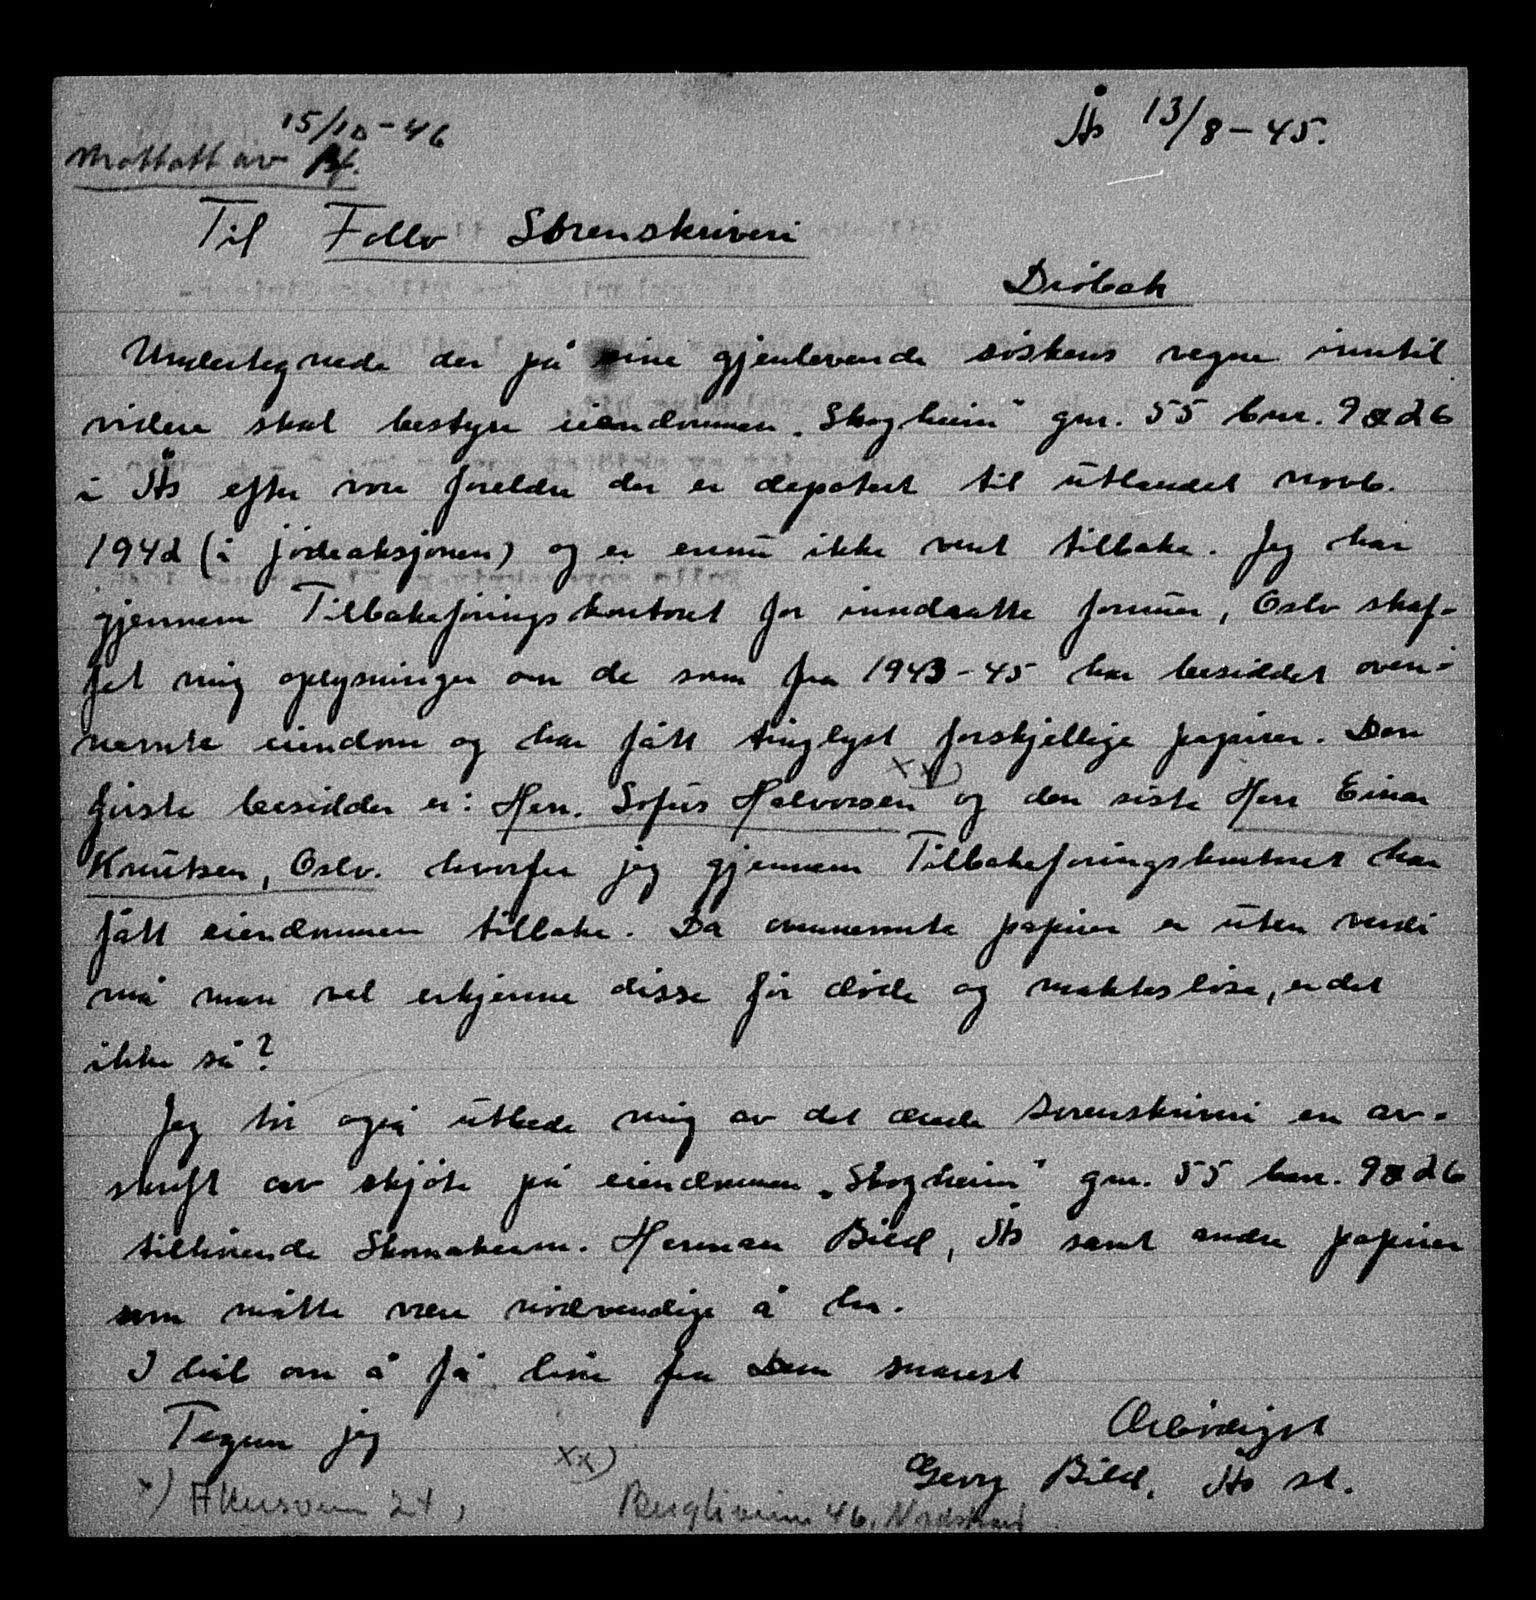 15/10-46
Mottatt av
Ås 13/8-45.
Til Follo Sörenskriveri
Dröbak
Undertegnede der på mine gjenlevende söskens vegne inntil
videre skal bestyre eiendommen „Skogheim" gnr. 55 bnr. 9 & 26
i Ås efter vore foreldre der er deportert til utlandet novb.
1942 (i jödeaksjonen) og er ennu ikke vent tilbake. Jeg har
gjennem Tilbakeföringskontoret for inndratte formuer, Oslo skaf-
fet mig oplysninger om de som fra 1943-45 har besiddet oven-
nevnte eiendom og har fått tinglyst forskjellige papirer. Den
xx)
förste besidder er: Herr. Sofus Halvorsen og den siste Herr Einar
Knutsen, Oslo. hvorfra jeg gjennem Tilbakeföringskontoret har
fått eiendommen tilbake. Da ovennevnte papirer er uten verdi
må man vel erkjenne disse for döde og makteslöse, er det
ikke så?
Jeg tör også utbede mig av det ærede sorenskriveri en av-
skrift av skjöte på eiendommen „Skogheim" gnr. 55 bnr. 9 & 26
tilhörende Skomakerm. Herman Bild, Ås samt andre papirer
som måtte være nödvendige å ha.
I håb om å få höre fra Dem snarest
Tegner jeg
Ærbödigst
Georg Bild, Ås st.
x) Akersveien 24,
xx)
46, Nordstrand